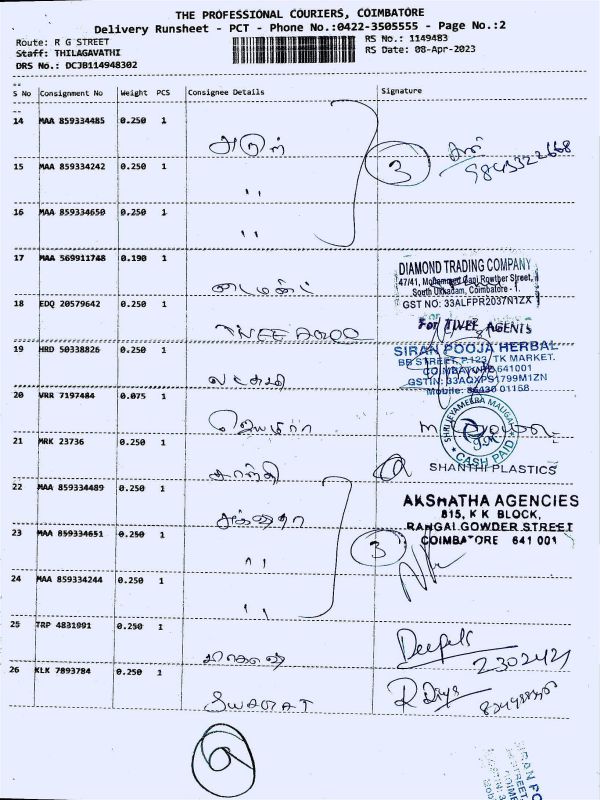 THE PROFESSIONAL COURIERS, COIMBATORE
Delivery Runsheet - PCT - Phone No.:0422-3505555 - Page No.:2
Route: R G STREET
RS No.: 1149483
Staff: THILAGAVATHI
RS Date: 08-Apr-2023
DRS No.: DCJB114948302
S No Consignment No Weight PCS Consignee Details Signature
14 MAA 859334485 0.250 1 அருள்
3
15 MAA 859334242 0.250 1 ,,
16 MAA 859334650 0.250 1 ,,
17 MAA 569911748 0.190 1 டைமண்ட்
DIAMOND TRADING COMPANY
47/41, Mohammed Gani Rowther Street,
South Ukkadam, Coimbatore - 1.
GST NO: 33ALFPR2037N1ZX
18 EDQ 20579642 0.250 1
For TIVEE AGENTS
19 HRD 50338826 0.250 1 லட்சுமி
SIRAN POOJA HERBAL
BB STREET, P.123, TK MARKET.
COIMBATORE 641001
GSTIN: 33AQXPS1799M1ZN
Mobile: 86430 01158
20 VRR 7197484 0.075 1 ஜெயமீரா
SHRI JEYAMEERA MALIGAI
CASH PAID
21 MRK 23736 0.250 1 சாந்தி
SHANTHI PLASTICS
22 MAA 859334489 0.250 1 அக்ஷதா
AKSHATHA AGENCIES
815, K K BLOCK,
RANGAI GOWDER STREET
COIMBATORE 641 001
23 MAA 859334651 0.250 1 ,,
3
24 MAA 859334244 0.250 1 ,,
25 TRP 4831991 0.250 1
Deepak
2302421
26 KLK 7893784 0.250 1 SWAGAT